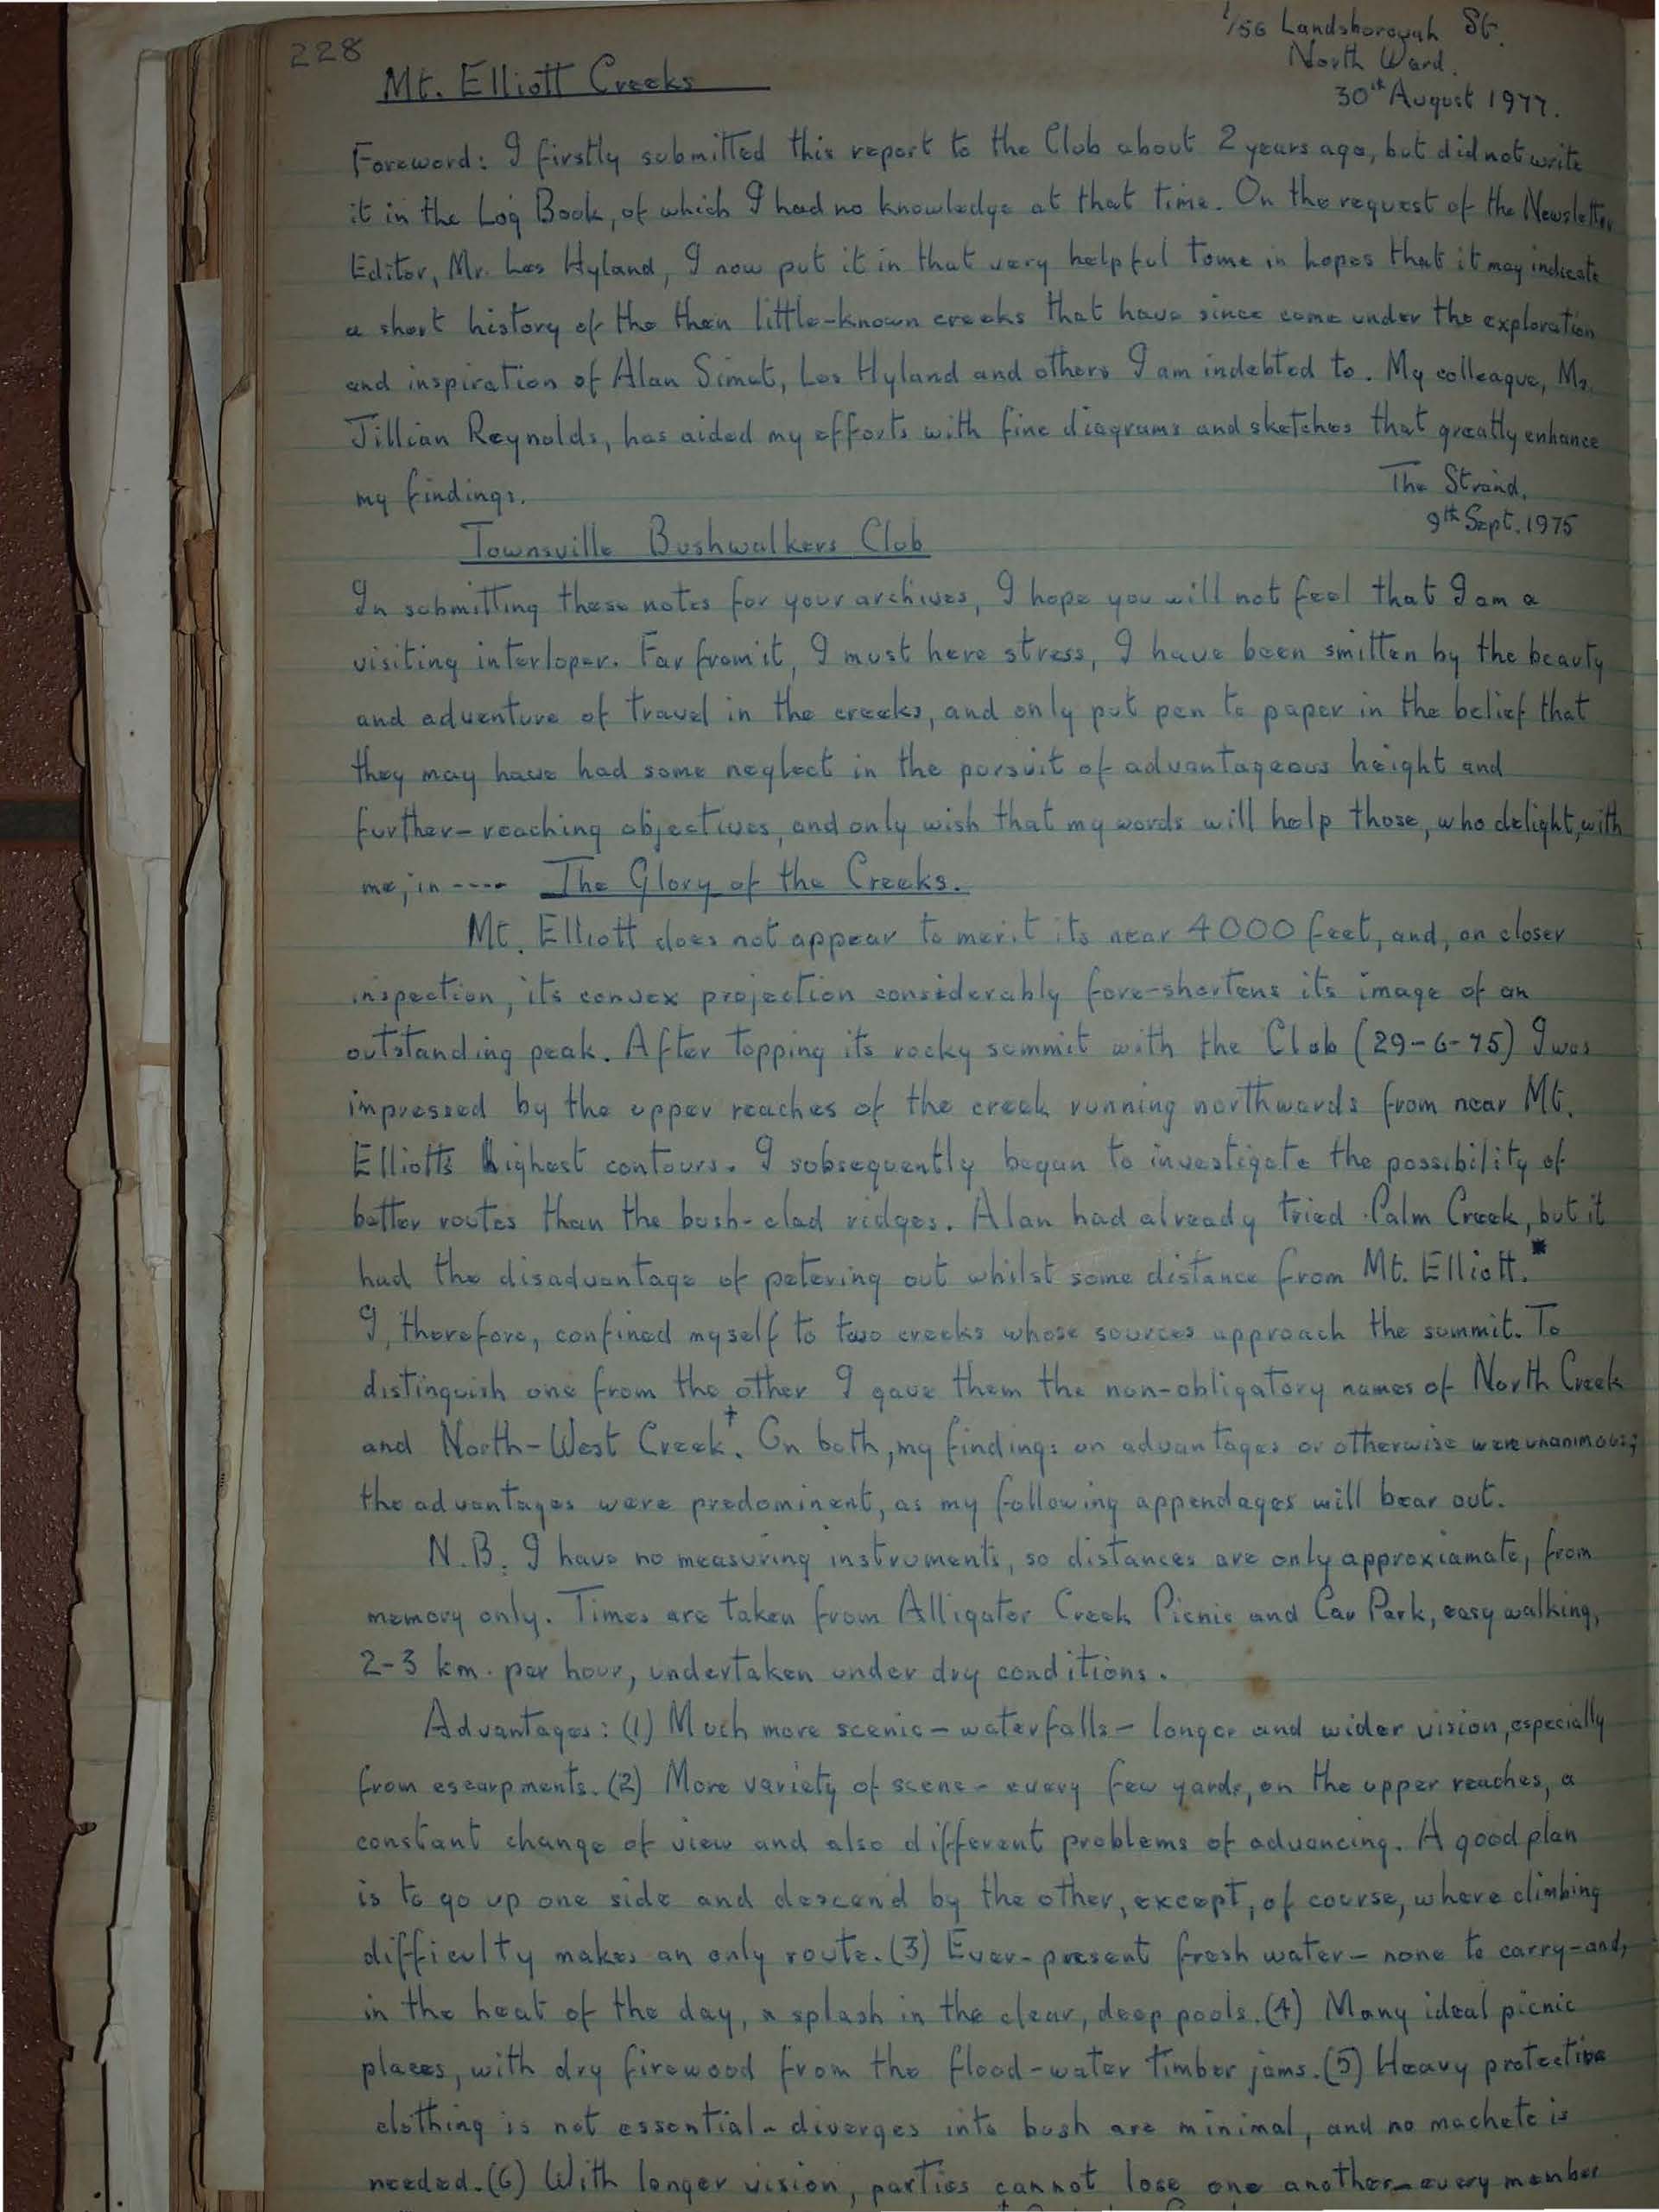 228
1/56 Landsborough St.
North Ward.
30th August 1977.
Mt. Elliott Creeks
Foreword: I firstly submitted this report to the Club about 2 years ago, but did not write
it in the Log Book, of which I had no knowledge at that time. On the request of the Newsletter
Editor, Mr. Les Hyland, I now put it in that very helpful tome in hopes that it may indicate
a short history of the then little-known creeks that have since come under the exploration
and inspiration of Alan Simut, Les Hyland and others I am indebted to. My colleague, Ms.
Jillian Reynolds, has aided my efforts with fine diagrams and sketches that greatly enhance
my findings.
The Strand,
9th Sept. 1975
Townsville Bushwalkers Club
In submitting these notes for your archives, I hope you will not feel that I am a
visiting interloper. Far from it, I must here stress, I have been smitten by the beauty
and adventure of travel in the creeks, and only put pen to paper in the belief that
they may have had some neglect in the pursuit of advantageous height and
further-reaching objectives, and only wish that my words will help those, who delight, with
me, in ---- The Glory of the Creeks.
Mt. Elliott does not appear to merit its near 4000 feet, and, on closer
inspection, its convex projection considerably fore-shortens its image of an
outstanding peak. After topping its rocky summit with the Club (29-6-75) I was
impressed by the upper reaches of the creek running northwards from near Mt.
Elliott's highest contours. I subsequently began to investigate the possibility of
better routes than the bush-clad ridges. Alan had already tried Palm Creek, but it
had the disadvantage of petering out whilst some distance from Mt. Elliott.*
I, therefore, confined myself to two creeks whose sources approach the summit. To
distinguish one from the other I gave them the non-obligatory names of North Creek
and North-West Creek†. On both, my findings on advantages or otherwise were unanimous;
the advantages were predominent, as my following appendages will bear out.
N.B. I have no measuring instruments, so distances are only approxiamate, from
memory only. Times are taken from Alligator Creek Picnic and Car Park, easy walking,
2-3 km. per hour, undertaken under dry conditions.
Advantages: (1) Much more scenic - waterfalls - longer and wider vision, especially
from escarpments. (2) More variety of scene - every few yards, on the upper reaches, a
constant change of view and also different problems of advancing. A good plan
is to go up one side and descend by the other, except, of course, where climbing
difficulty makes an only route. (3) Ever-present fresh water - none to carry - and,
in the heat of the day, a splash in the clear, deep pools. (4) Many ideal picnic
places, with dry firewood from the flood-water timber jams. (5) Heavy protective
clothing is not essential - diverges into bush are minimal, and no machete is
needed. (6) With longer vision, parties cannot lose one another - every member